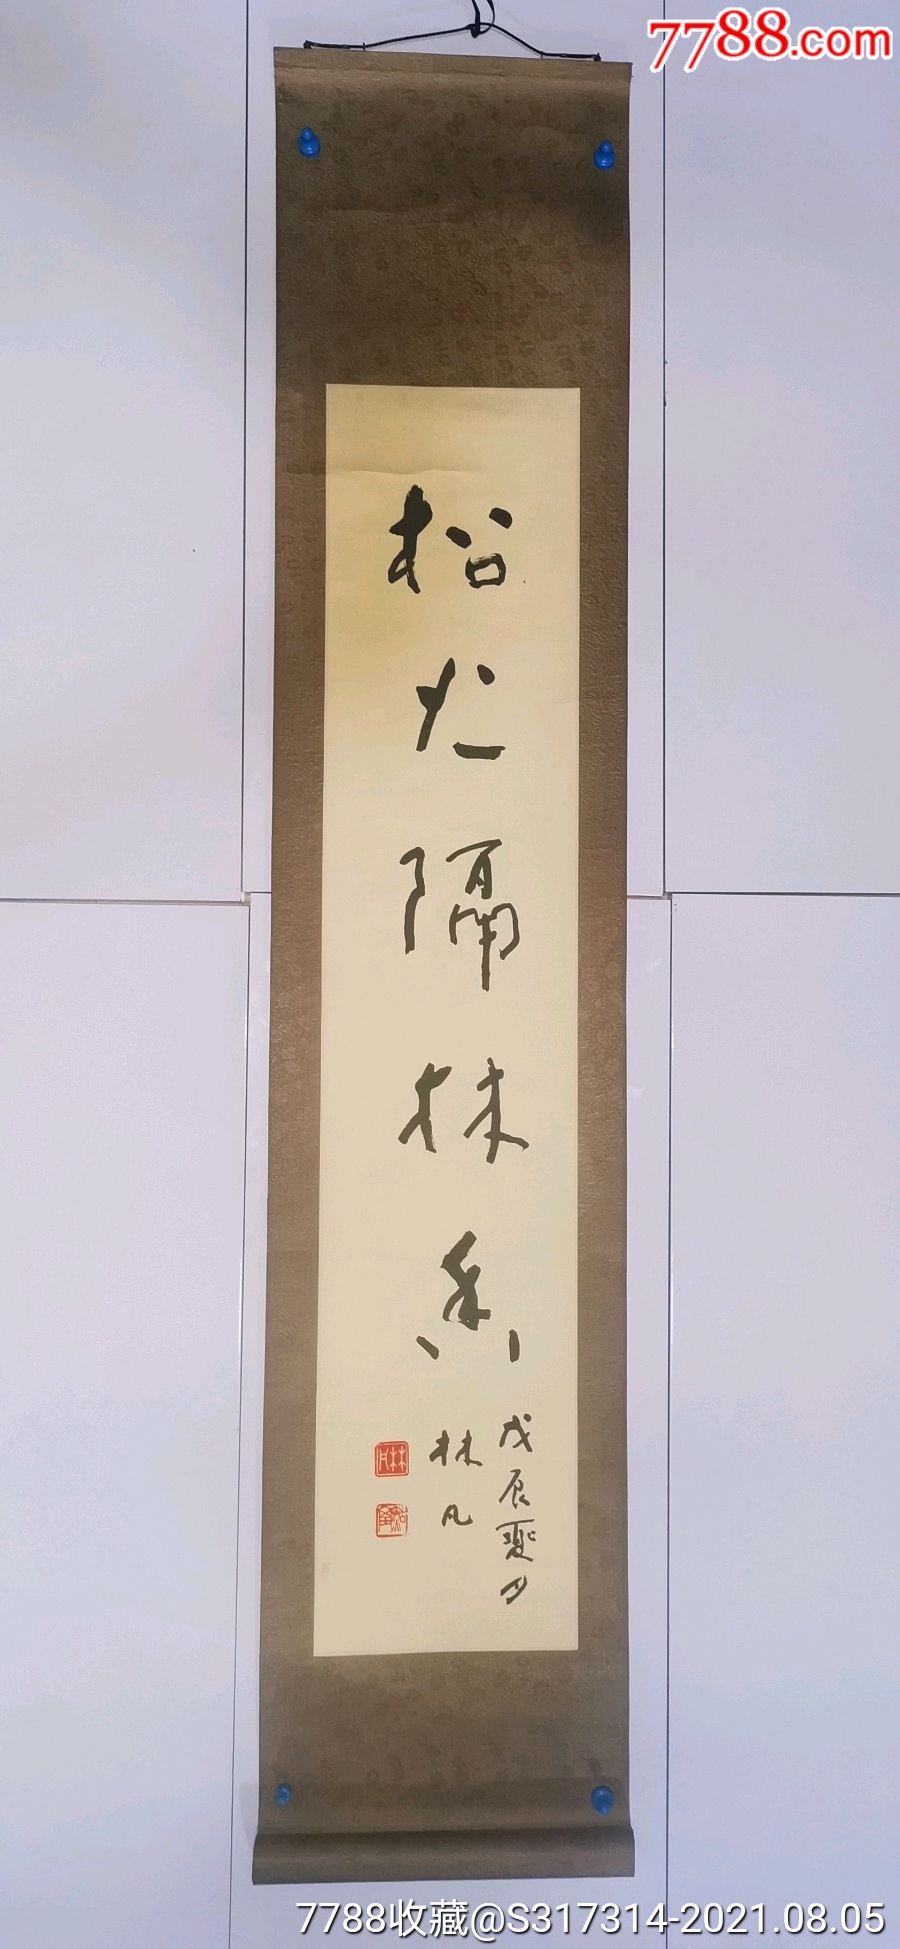 7788.com
松隔林香
戊辰夏月
林凡
林凡
7788收藏@S317314-2021.08.05